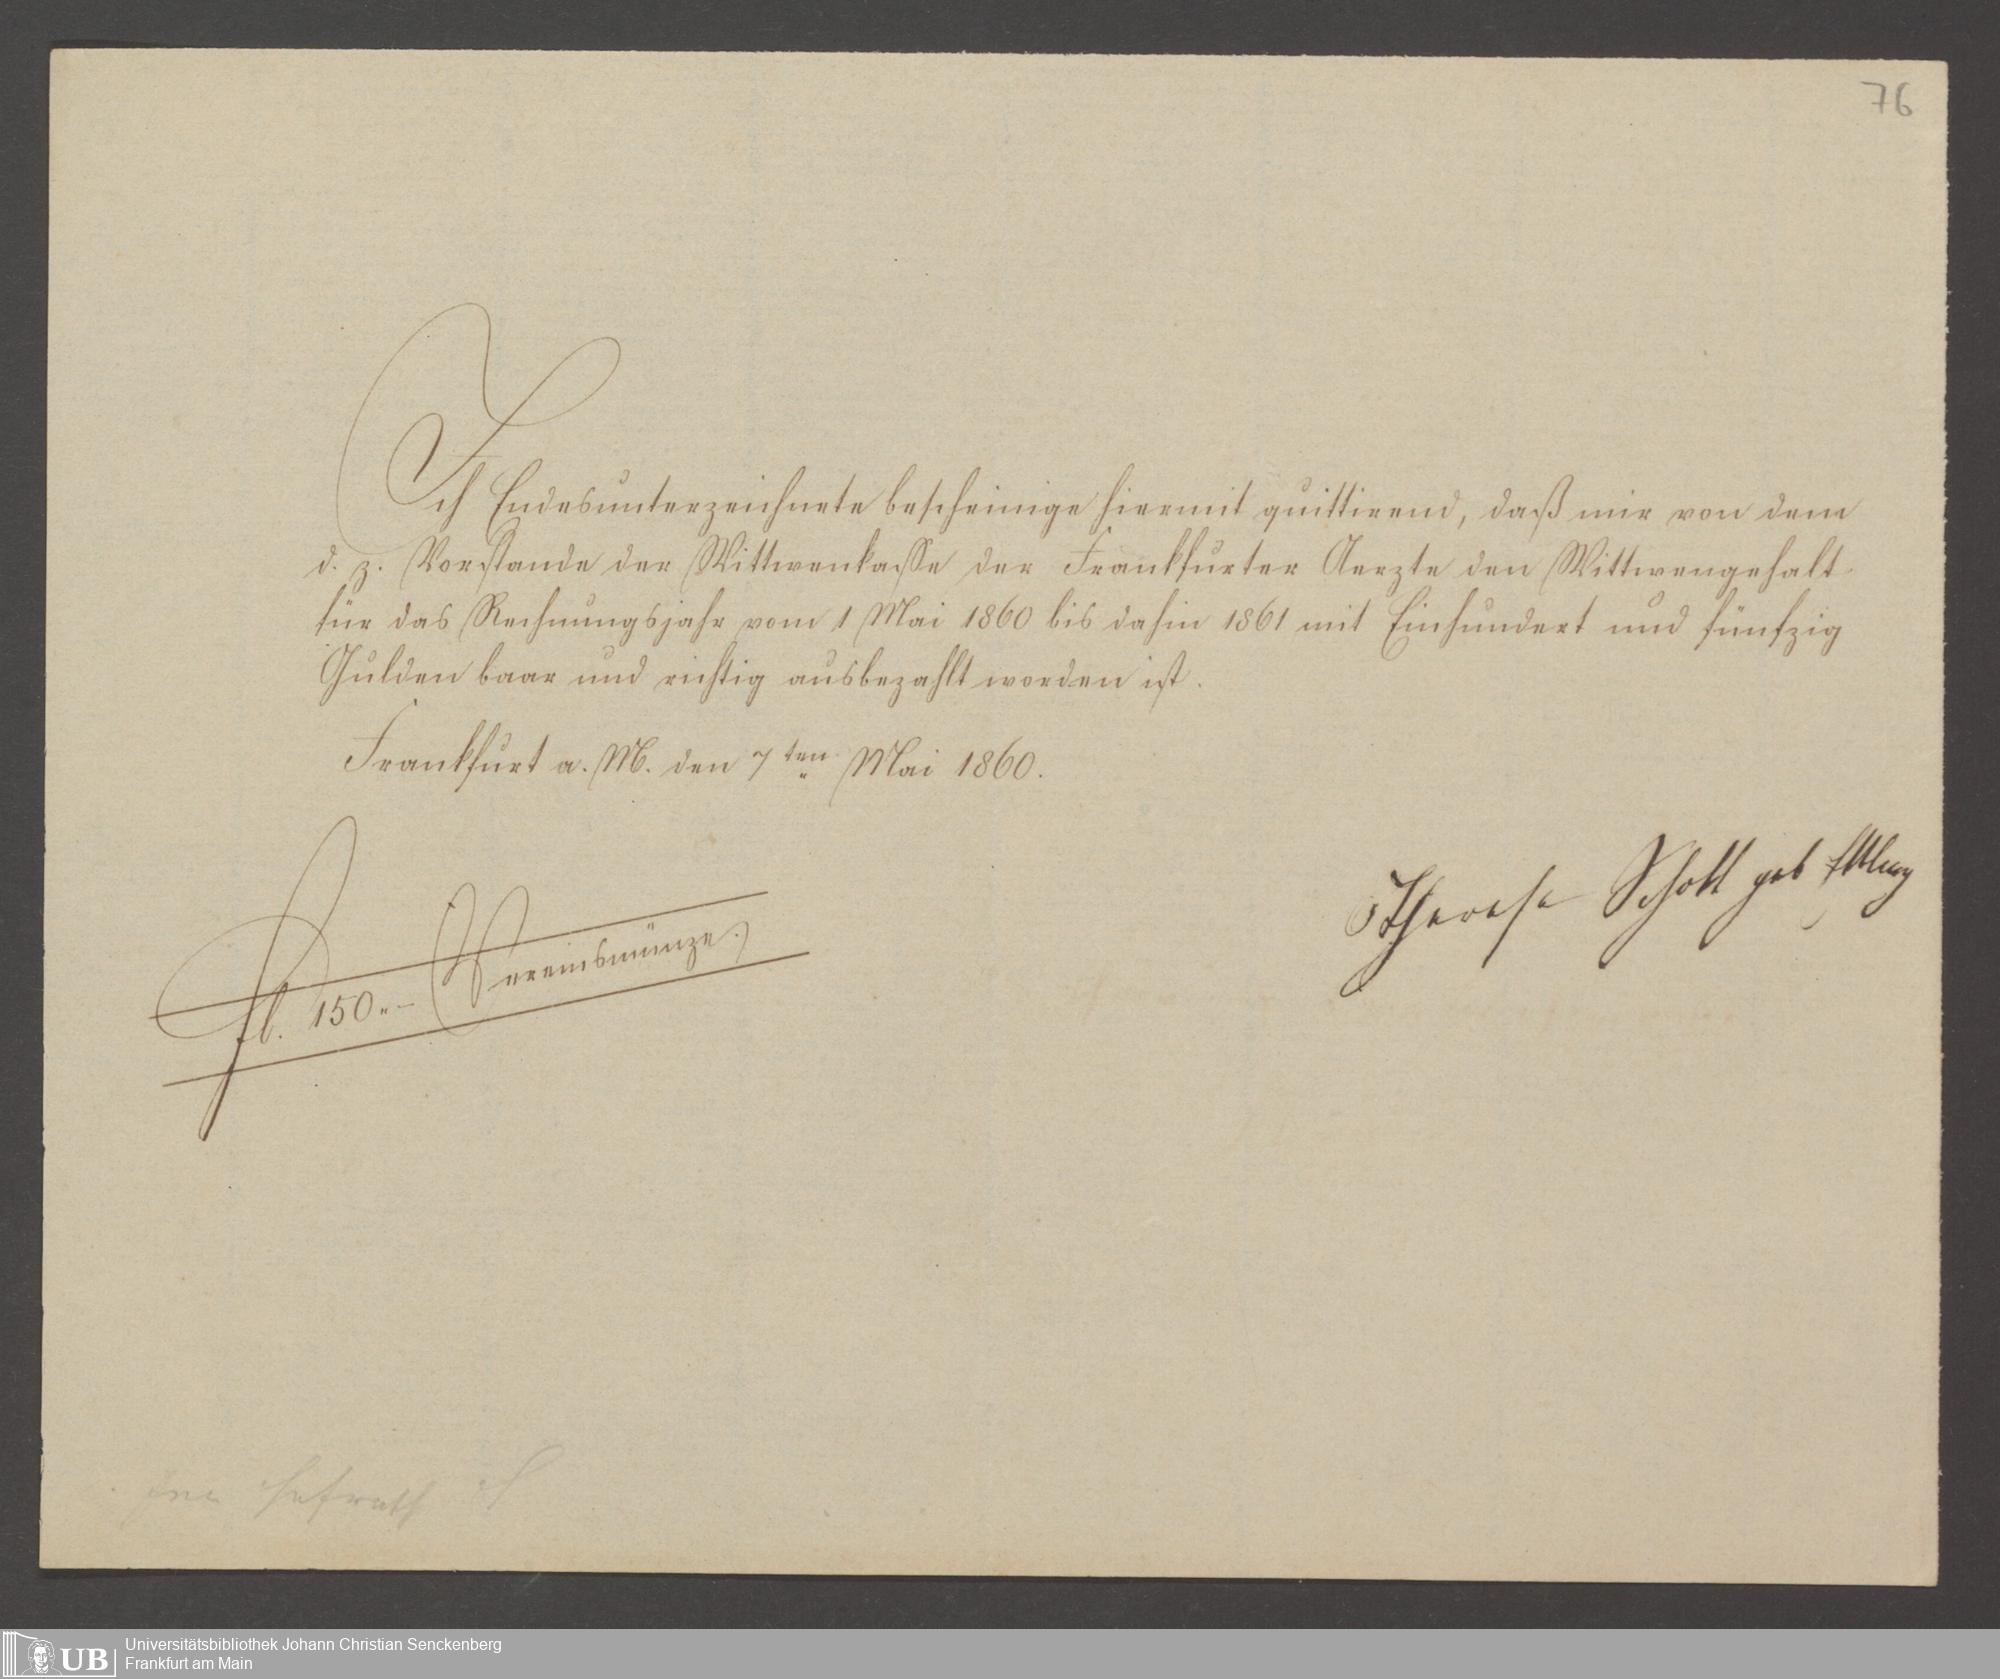 76
Ich Endesunterzeichnete bescheinige hiermit quittirend, daß mir von dem
d. z. Vorstande der Wittwenkasse der Frankfurter Aerzte den Wittwengehalt
für das Rechnungsjahr vom 1 Mai 1860 bis dahin 1861 mit Einhundert und fünfzig
Gulden baar und richtig ausbezahlt worden ist.
Frankfurt a. M. den 7ten Mai 1860.
Therese Schott geb Ettling
fl. 150.- (Vereinsmünze.)
Hofrath
UB Universitätsbibliothek Johann Christian Senckenberg
Frankfurt am Main